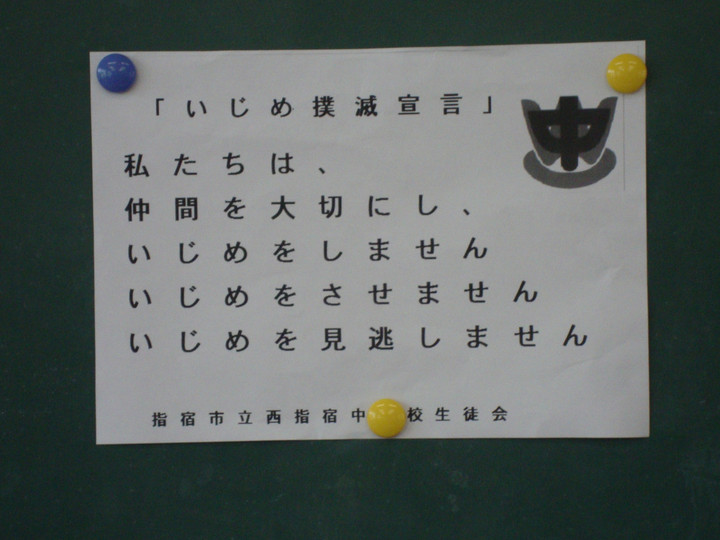 「いじめ撲滅宣言」
中
私たちは、
仲間を大切にし、
いじめをしません
いじめをさせません
いじめを見逃しません
指宿市立西指宿中 校生徒会